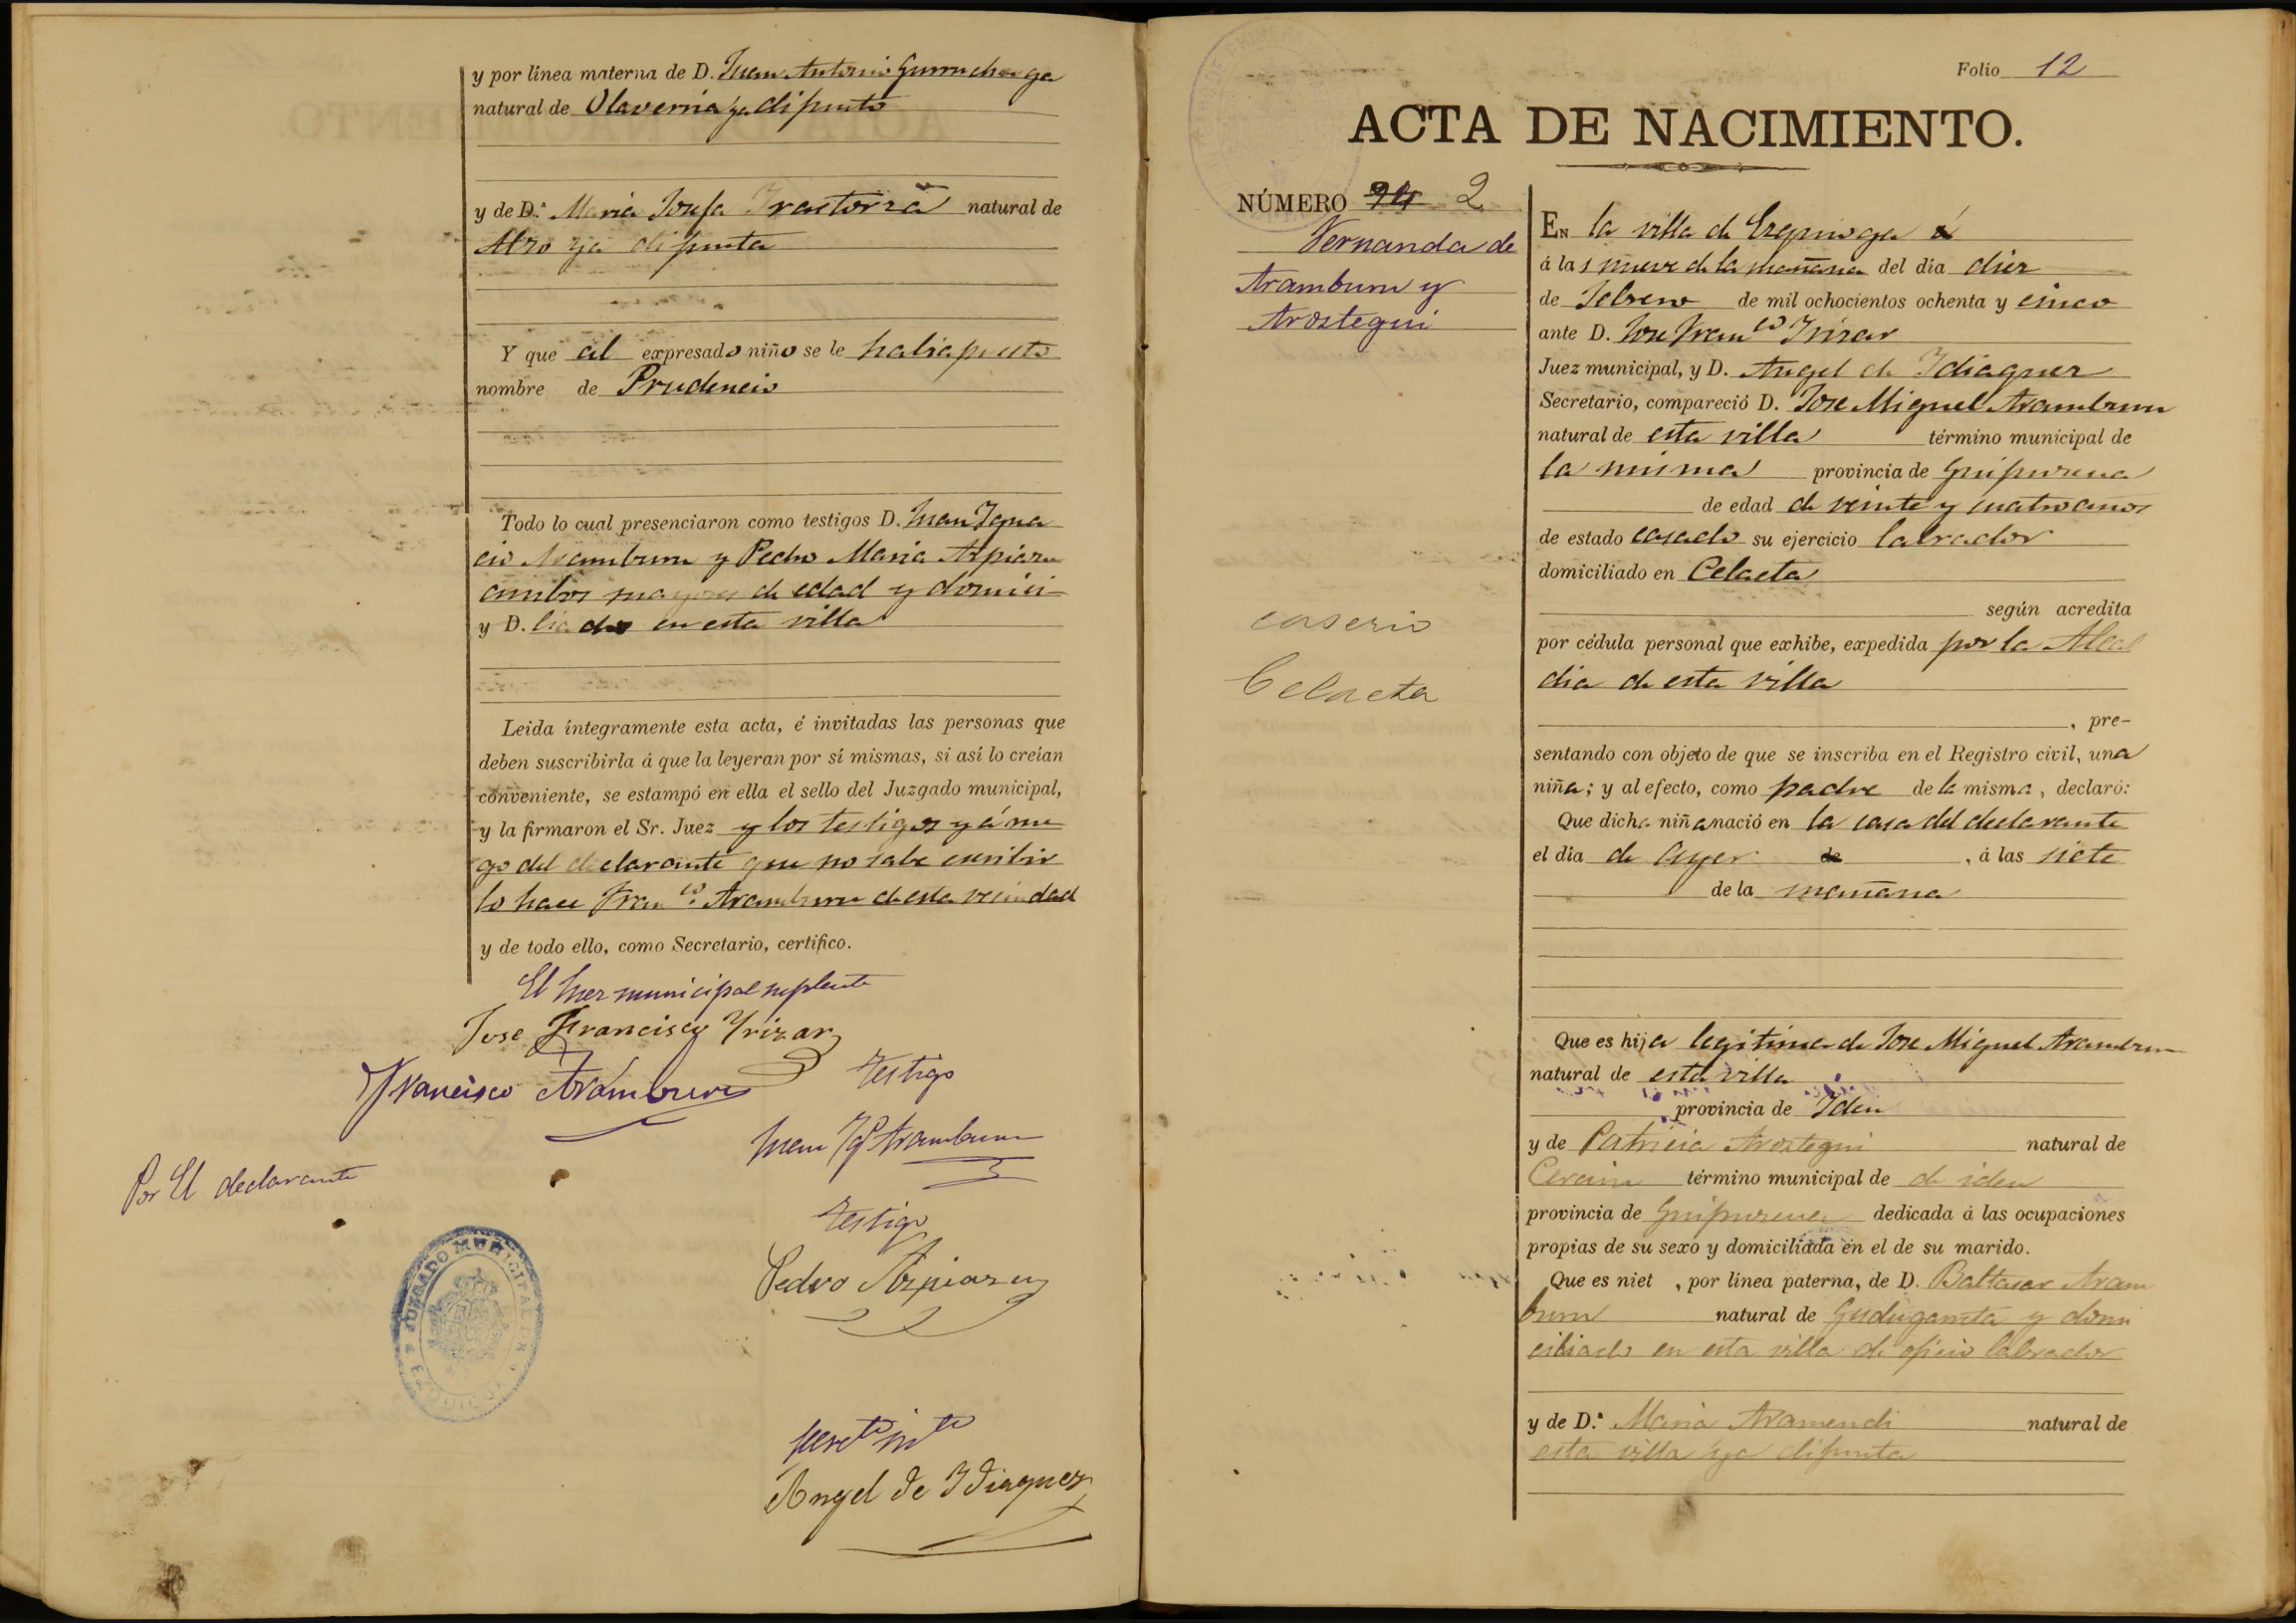 y por línea materna de D. Juan Antonio Gurruchaga
natural de Olaverria ya difunto
y de D.ª Maria Josefa Irastorza natural de
Alzo ya difunta
Y que al expresado niño se le habia puesto
nombre de Prudencio
Todo lo cual presenciaron como testigos D. Juan Igna
cio Aramburu y Pedro Maria Azpiazu
ambos mayores de edad y domici
y D. liados en esta villa
Leida íntegramente esta acta, é invitadas las personas que
deben suscribirla á que la leyeran por sí mismas, si así lo creían
conveniente, se estampó en ella el sello del Juzgado municipal,
y la firmaron el Sr. Juez y los testigos y á rue
go del declarante que no sabe escribir
lo hace Franco. Aramburu de esta vecindad
y de todo ello, como Secretario, certifico.
El Juez municipal suplente
Jose Francisco Yrizar
Francisco Aramburu
testigo
Juan Ygº Aramburu
Por El declarante
testigo
Pedro Azpiazu
JUZGADO MUNICIPAL
Angel de Ydiaquez
Folio 12
ACTA DE NACIMIENTO.
NÚMERO 2
Fernanda de
Aramburu y
Aroztegui
caserio
Celaeta
En la villa de Ezquioga á
á las nueve de la mañana del día diez
de Febrero de mil ochocientos ochenta y cinco
ante D. Jose Franco Irizar
Juez municipal, y D. Angel de Idiaquez
Secretario, compareció D. Jose Miguel Aramburu
natural de esta villa término municipal de
la misma provincia de Guipuzcua
de edad de veinte y cuatro años
de estado casado su ejercicio labrador
domiciliado en Celaeta
según acredita
por cédula personal que exhibe, expedida por la Alcal
dia de esta villa
, pre-
sentando con objeto de que se inscriba en el Registro civil, una
niña; y al efecto, como padre de la misma, declaró:
Que dicha niña nació en la casa del declarante
el día de ayer de , á las siete
de la mañana
Que es hija legitima de Jose Miguel Aramburu
natural de esta villa
provincia de Iden
y de Patricia Aroztegui natural de
Cerain término municipal de de iden
provincia de Guipuzcua dedicada á las ocupaciones
propias de su sexo y domiciliada en el de su marido.
Que es niet , por línea paterna, de D. Baltasar Aram
buru natural de Gudugarreta y domi
ciliado en esta villa de oficio labrador
y de D.ª Maria Aramendi natural de
esta villa ya difunta